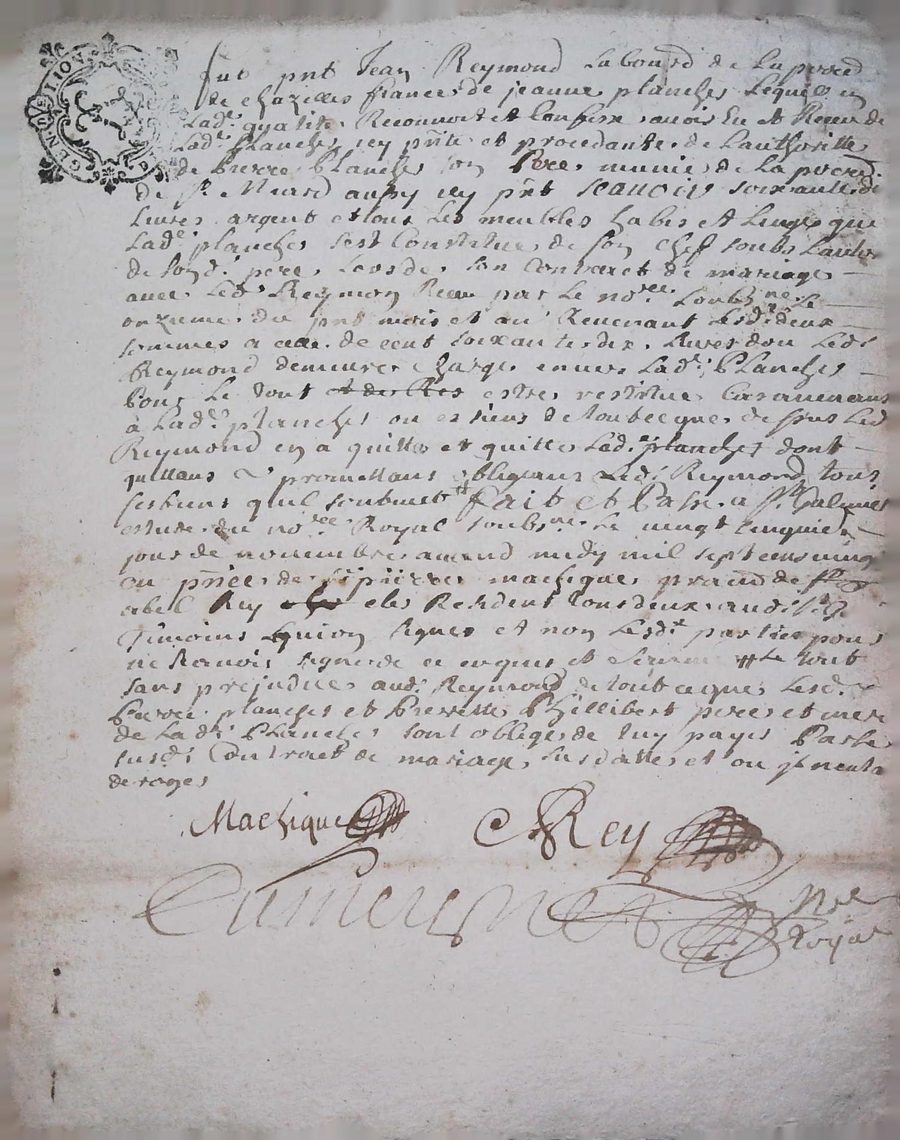 GEN DE LION
fut pnt Jean Reymond Labourd de la parred
de chazelles fiance de jeanne planches Lequel en
Lad. qualite Reconnoit et Confesse avoir Eu et Receu de
Lad. planches icy pnte et procedante de Lauthoritte
de pierre planches son Pere munie de la parred
de St Meard aussy icy pnt scavoir soixante dix
Livres argent et tous Les meubles habis et Linge que
Lade planches sest Constitue de son chef soubs Lauto
de sond. pere Lors de son Contract de mariage
avec Led. Reymon Receu par le nore soubsne Le
onzieme du pnt mois et an Revenant Lesd. deux
sommes a celle de cent soixante dix Livres don Led.
Reymond demeure charge envers Lad. planches
pour Le tout estre restitue
a Lad. planches ou es siens de tout ce que dessus Led
Reymond en a quitte et quitte Lad. planches dont
promettans obligeans Led. Reymond tous
ses biens quil soubmet fait et Passe a St Galmier
estude du nore Royal soubsne Le vingt cinquie
jour de novembre avend midy mil sept cens vingt
en pnce de sr pierre machique praud de
abel Rey cler Residens tous deux aud. St G
Temoins signes et non Lesd. parties pour
ne scavoir signer de ce enquis et # Le tout
sans prejudice aud. Reymond de tout ce que Lesd.
pierre planches et pierrette phillibert pere et mere
de Lad. planches sont obliges de Luy payer par Le
susd. Contract de mariage susdatte et ou je neuta
deroges
Machique Rey
Nore
Royal